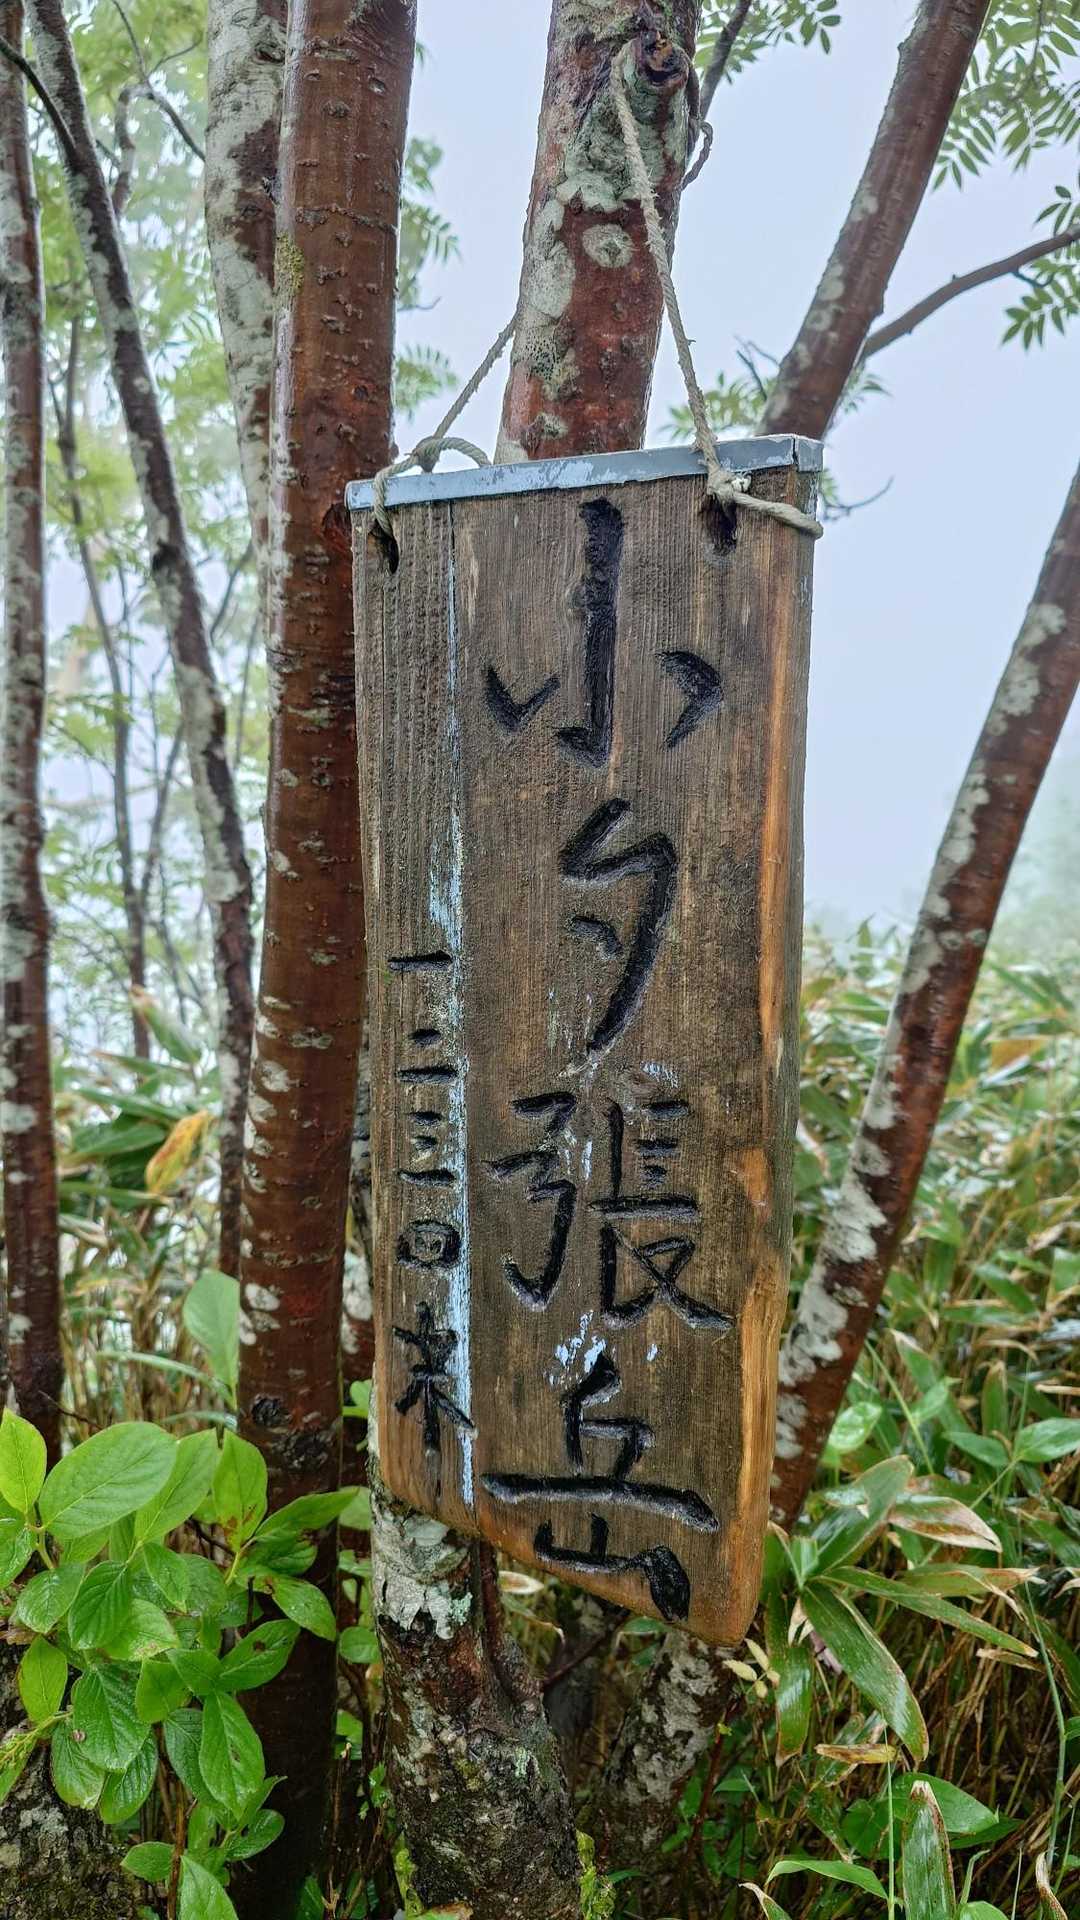 小夕張岳
一二三四米